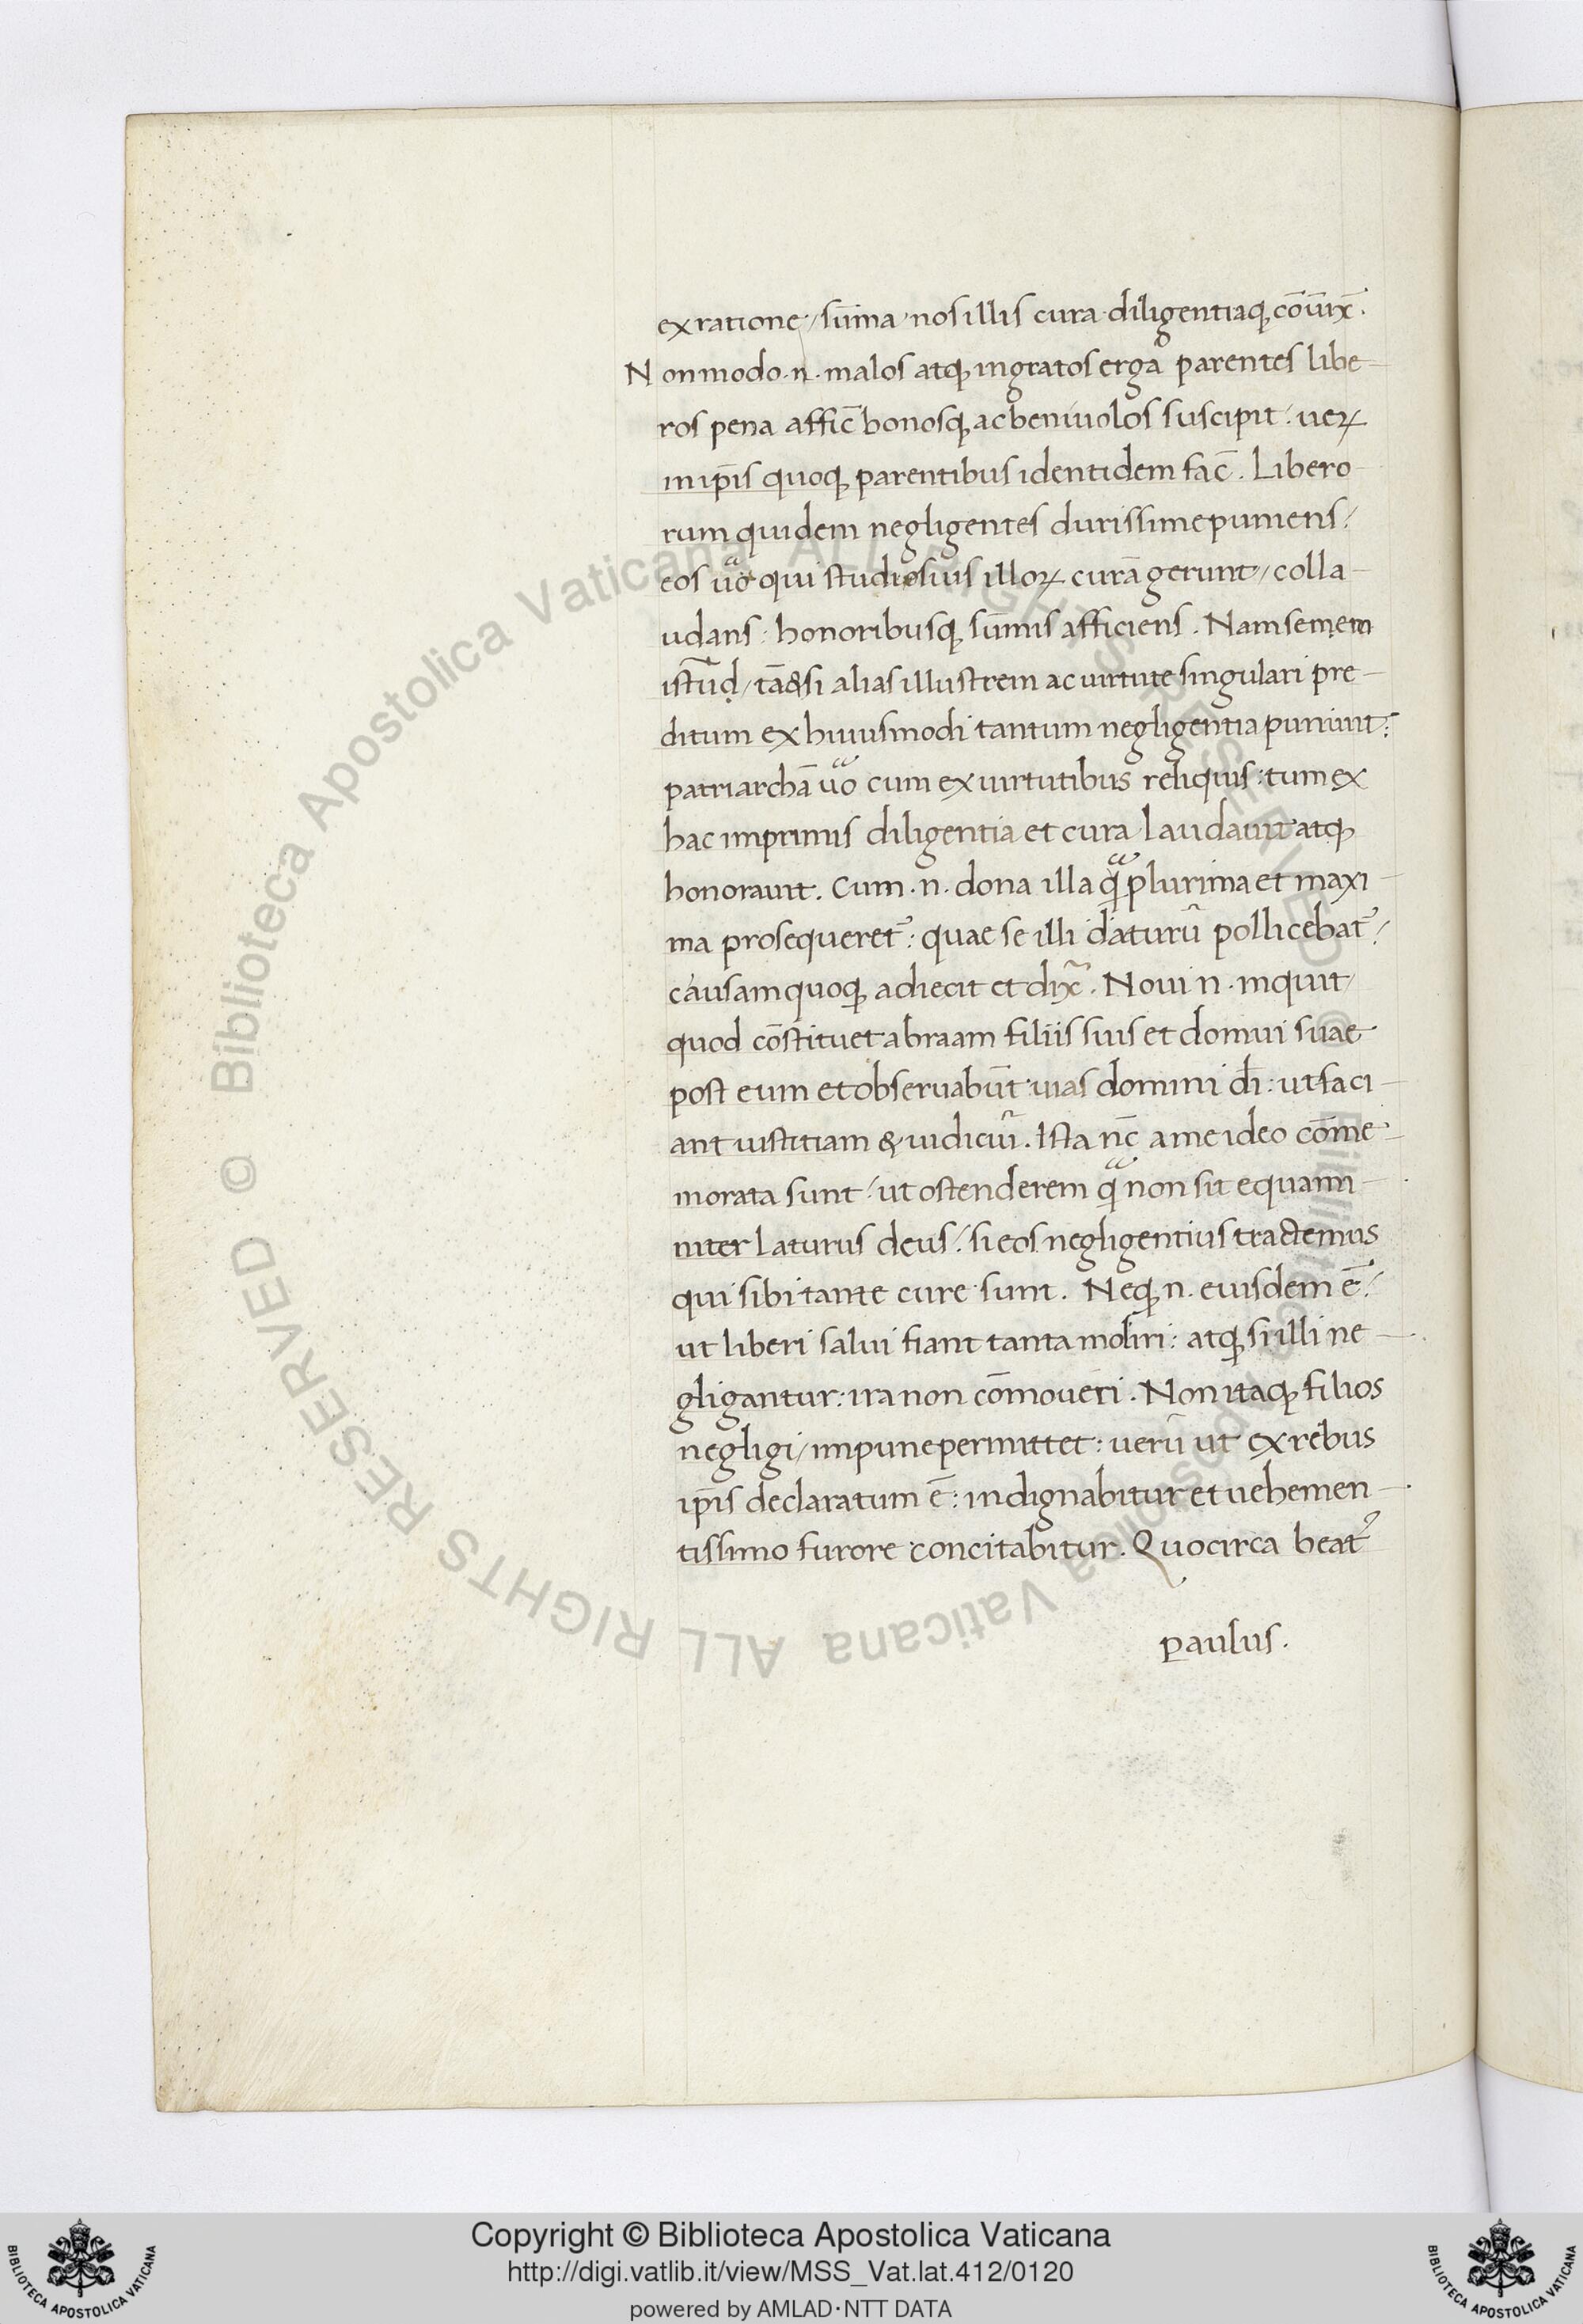 ex ratione / sūma nos illis cura diligentiaq; cōiūx̄.
Non modo .n. malos atq; ingratos erga parentes libe-
ros pena affic̄ bonosq; ac beniuolos suscipit / ueꝝ
in ip̄is quoq; parentibus identidem fac̄. Libero
rum quidem negligentes durissime puniens /
eos u̅o qui studiosius illoꝝ curā gerunt / colla-
udans : honoribusq; sūmis afficiens. Nam senem
istud / tā&si alias illustrem ac uirtute singulari pre-
ditum ex huiusmodi tantum negligentia puniuit :
patriarchā u̅o cum ex uirtutibus reliquis : tum ex
hac imprimis diligentia et cura laudauit atq;
honorauit. Cum .n. dona illa q̄ plurima et maxi-
ma prosequeret᷑ : quae se illi daturū pollicebat᷑ /
causam quoq; adiecit et dix̄. Noui n. inquit /
quod cōstituet abraam filiis suis et domui suae
post eum et obseruabūt uias domini dī : ut faci-
ant iustitiam & iudiciū. Ista nc̄ a me ideo cōme-
morata sunt / ut ostenderem q̄ non sit equani-
niter laturus deus / si eos negligentius tractemus
qui sibi tante cure sunt. Neq; n. eiusdem ē /
ut liberi salui fiant tanta moliri : atq; si illi ne-
gligantur : ira non cōmoueri. Non itaq; filios
negligi / impune permittet : uerū ut ex rebus
ip̄is declaratum ē : indignabitur et uehemen-
tissimo furore concitabitur. Quocirca beat᷑
paulus.
Biblioteca Apostolica Vaticana ALL RIGHTS RESERVED ©
Biblioteca Apostolica Vaticana ALL RIGHTS RESERVED ©
BIBLIOTECA APOSTOLICA VATICANA
Copyright © Biblioteca Apostolica Vaticana
http://digi.vatlib.it/view/MSS_Vat.lat.412/0120
powered by AMLAD·NTT DATA
BIBLIOTECA APOSTOLICA VATICANA